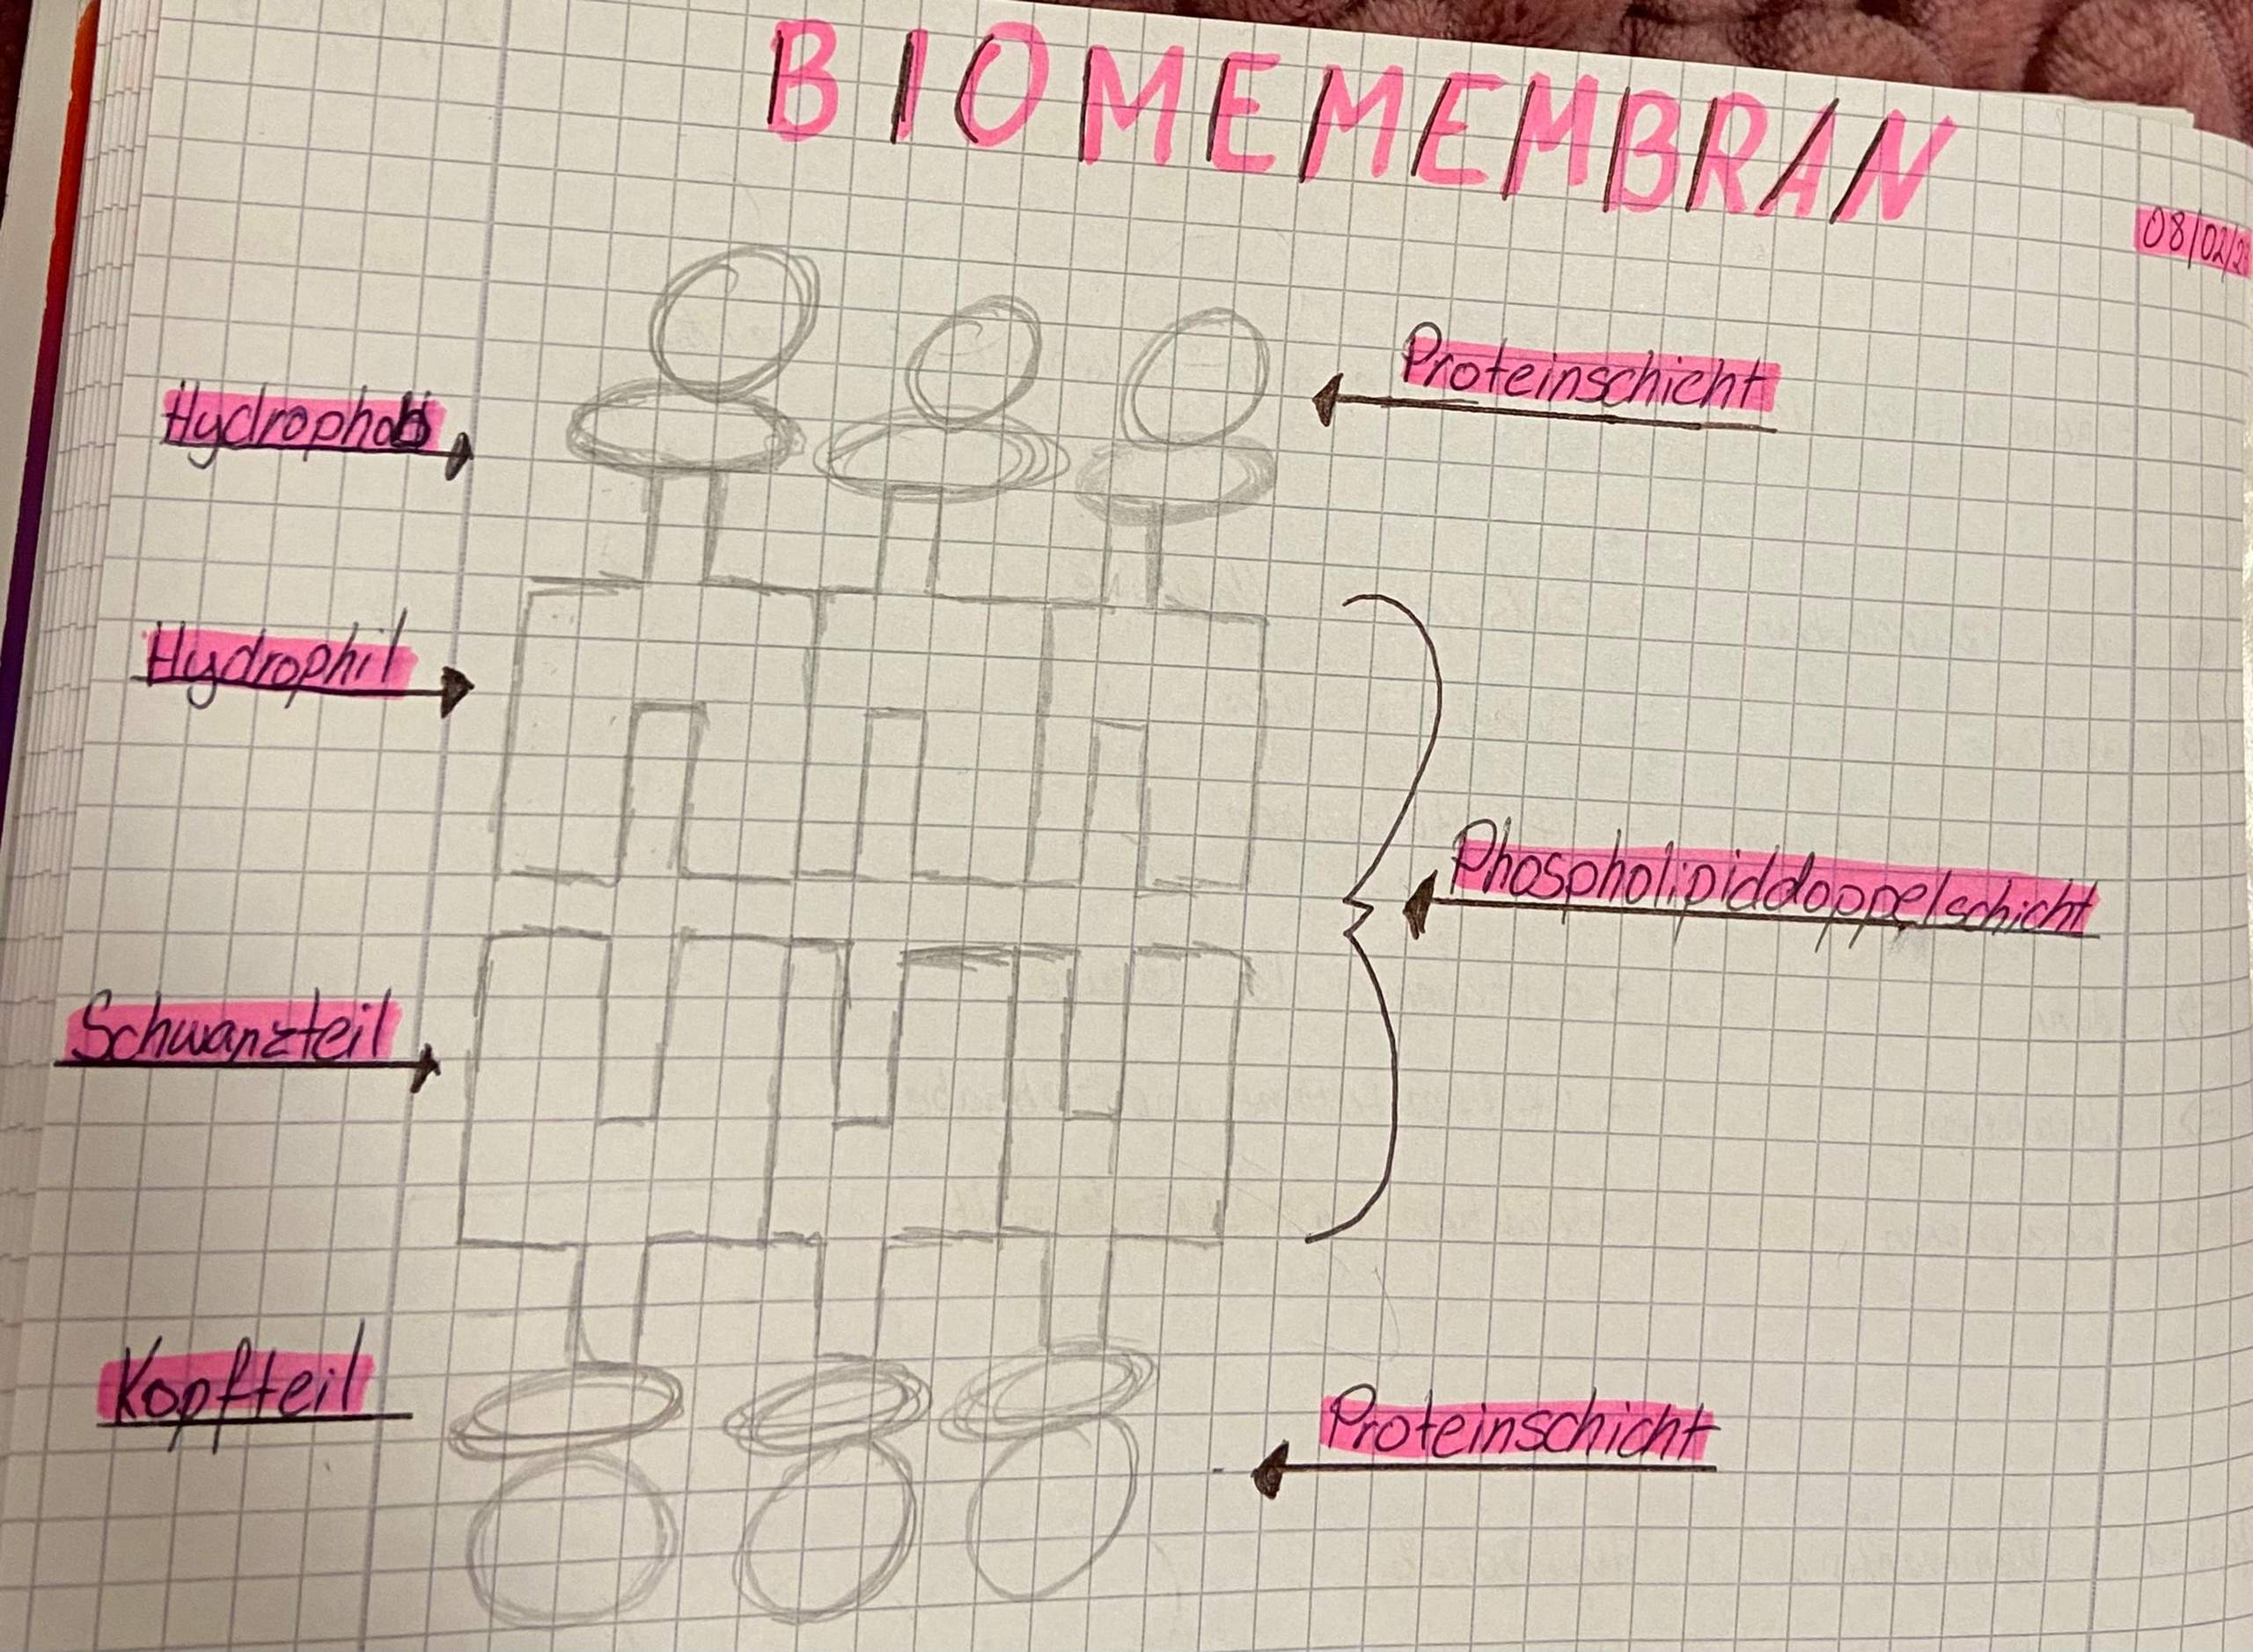 BIOMEMEMBRAN
08/02/2
Proteinschicht
Hydrophob
Hydrophil
Phospholipiddoppelschicht
Schwanzteil
Kopfteil
Proteinschicht